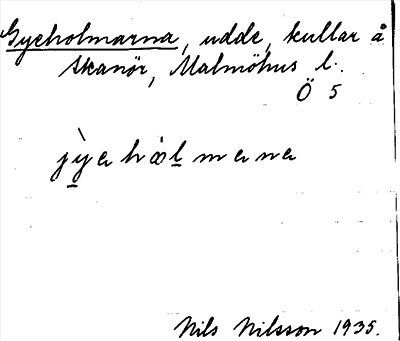 Gyeholmarna, udde, kullar å
Skanör, Malmöhus l.
Ö 5
jỳa hòlmana
Nils Nilsson 1935.